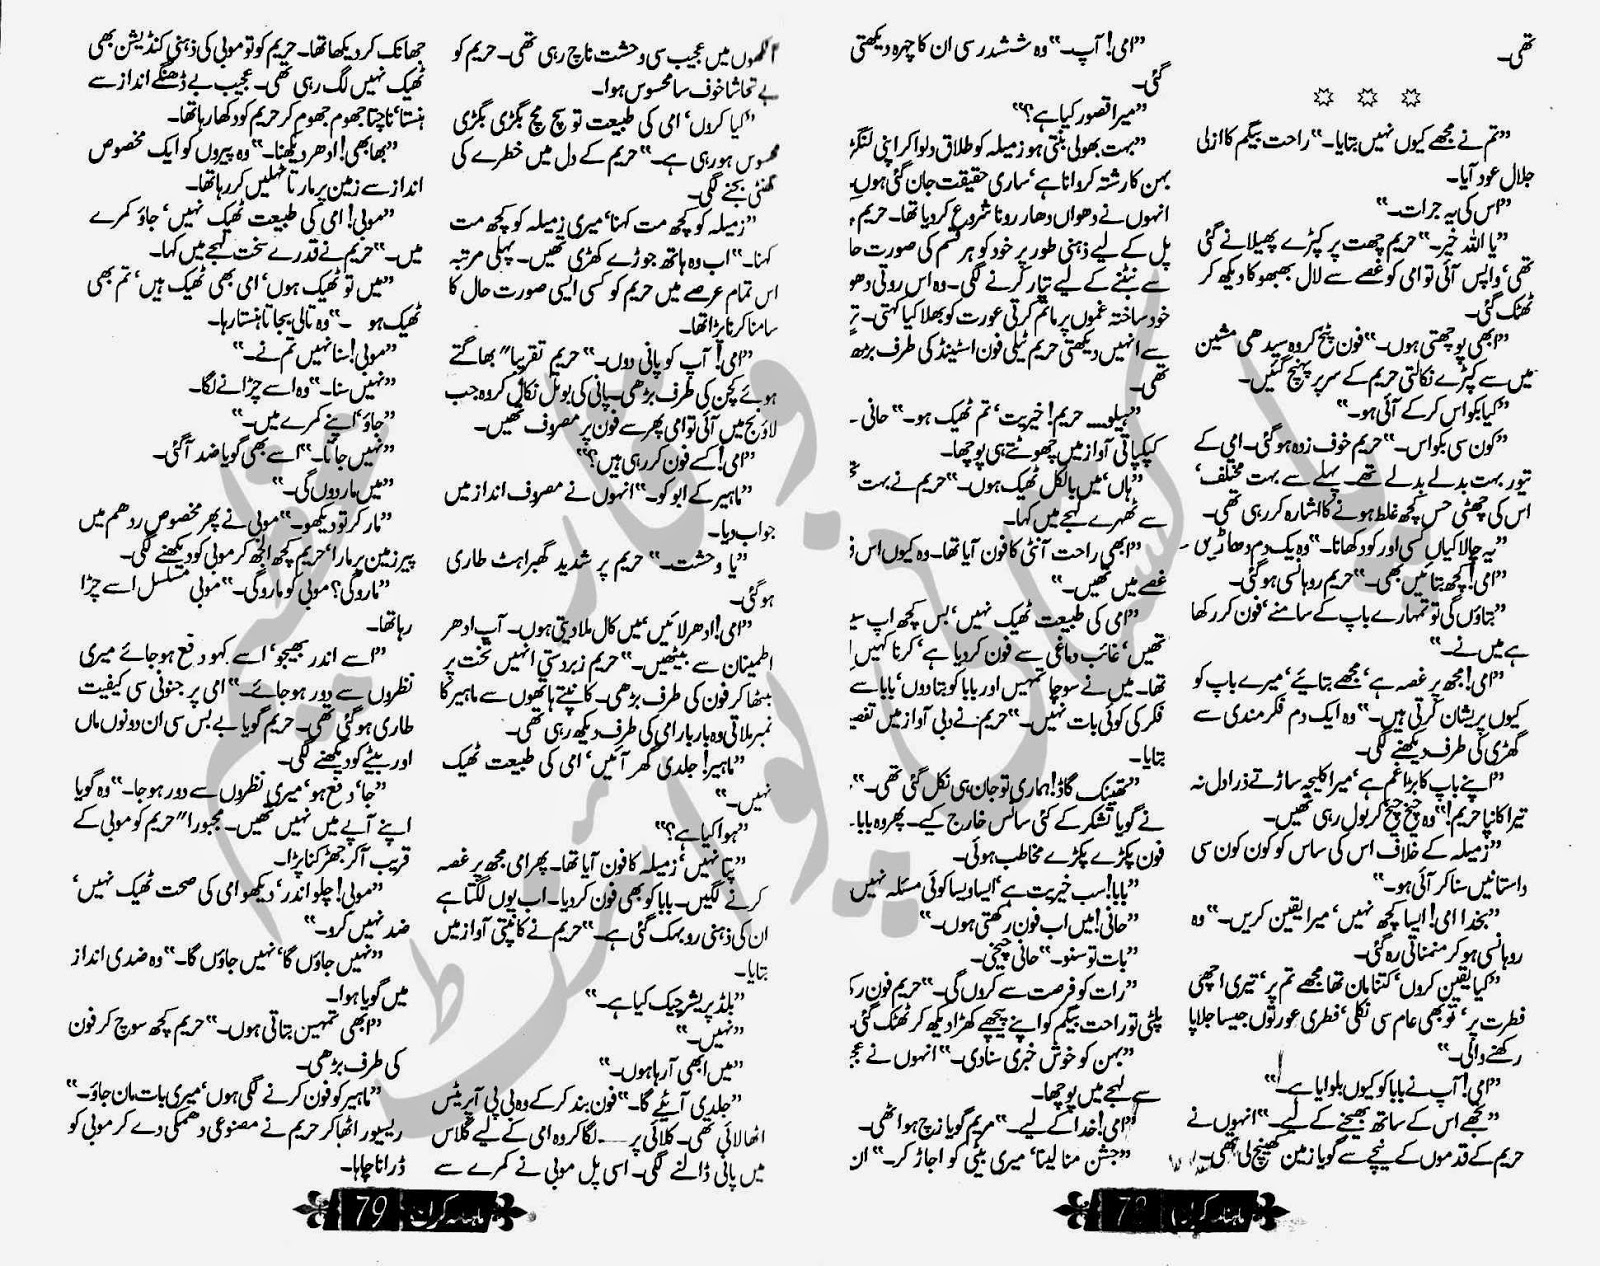 تھی۔
"تم نے مجھے کیوں نہیں بتایا۔" راحت بیگم کا ازلی
جلال عود آیا۔
"اس کی یہ جرات۔"
"یا اللہ خیر۔" حریم چھت پر کپڑے پھیلانے گئی
تھی، واپس آئی تو امی کو غصے سے لال بھبھوکا دیکھ کر
ٹھٹک گئی۔
"ابھی پوچھتی ہوں۔" فون پٹخ کر وہ سیدھی مشین
میں سے کپڑے نکالتی حریم کے سر پر پہنچ گئیں۔
"کیا بکواس کرکے آئی ہو۔"
"کون سی بکواس۔" حریم خوف زدہ ہوگئی۔ امی کے
تیور بہت بدلے بدلے تھے۔ پہلے سے بہت مختلف،
اس کی چھٹی حس کچھ غلط ہونے کا اشارہ کررہی تھی۔
"یہ چالاکیاں کسی اور کو دکھانا۔" وہ یک دم دھاڑیں۔
"امی! کچھ بتائیں بھی۔" حریم روہانسی ہوگئی۔
"بتاؤں گی تو تمہارے باپ کے سامنے، فون کر رکھا
ہے میں نے۔"
"امی! مجھ پر غصہ ہے، مجھے بتائیے، میرے باپ کو
کیوں پریشان کرتی ہیں۔" وہ ایک دم فکرمندی سے
گھڑی کی طرف دیکھنے لگی۔
"اپنے باپ کا بڑا غم ہے، میرا کلیجہ ساڑتے ذرا دل نہ
تیرا کانپا حریم!" وہ چیخ چیخ کر بول رہی تھیں۔
"زمیلہ کے خلاف اس کی ساس کو کون کون سی
داستانیں سنا کر آئی ہو۔"
"بخدا امی! ایسا کچھ نہیں، میرا یقین کریں۔" وہ
روہانسی ہو کر منمناتی رہ گئی۔
"کیا یقین کروں، کتنا مان تھا مجھے تم پر، تیری اچھی
فطرت پر، تو بھی عام سی نکلی، فطری عورتوں جیسا جلاپا
رکھنے والی۔"
"امی! آپ نے بابا کو کیوں بلوایا ہے۔"
"تجھے اس کے ساتھ بھیجنے کے لیے۔" انہوں نے
حریم کے قدموں کے نیچے سے گویا زمین کھینچ لی تھی۔
"امی! آپ۔" وہ ششدر سی ان کا چہرہ دیکھتی
گئی۔
"میرا قصور کیا ہے؟"
"بہت بھولی بنتی ہو زمیلہ کو طلاق دلوا کر اپنی لنگڑ
بہن کا رشتہ کروانا ہے، ساری حقیقت جان گئی ہوں۔
انہوں نے دھواں دھار رونا شروع کردیا تھا۔ حریم
پل کے لیے ذہنی طور پر خود کو ہر قسم کی صورت حا
سے نبٹنے کے لیے تیار کرنے لگی۔ وہ اس روتی دھو
خود ساختہ غموں پر ماتم کرتی عورت کو بھلا کیا کہتی۔
سے انہیں دیکھتی حریم ٹیلی فون اسٹینڈ کی طرف بڑھ
تھی۔
"ہیلو.... حریم! خیریت، تم ٹھیک ہو۔" حانی
کپکپاتی آواز میں چھوٹتے ہی پوچھا۔
"ہاں، میں بالکل ٹھیک ہوں۔" حریم نے بہت
سے ٹھہرے لہجے میں کہا۔
"ابھی راحت آنٹی کا فون آیا تھا۔ وہ کیوں اس
غصے میں تھیں۔"
"امی کی طبیعت ٹھیک نہیں، بس کچھ اپ سیٹ
تھیں، غائب دماغی سے فون کردیا ہے، کرنا کہیں
تھا۔ میں نے سوچا تمہیں اور بابا کو بتا دوں، بابا سے
فکر کی کوئی بات نہیں۔" حریم نے دبی آواز میں تفصی
بتایا۔
"تھینک گاڈ! ہماری تو جان ہی نکل گئی تھی۔"
نے گویا تشکر کے کئی سانس خارج کیے۔ پھر وہ بابا
فون پکڑے پکڑے مخاطب ہوئی۔
"بابا! سب خیریت ہے، ایسا ویسا کوئی مسئلہ نہیں
"حانی! میں اب فون رکھتی ہوں۔"
"بات تو سنو۔" حانی چیخی۔
"رات کو فرصت سے کروں گی۔" حریم فون رکھ
پلٹی تو راحت بیگم کو اپنے پیچھے کھڑا دیکھ کر ٹھٹک گئی۔
"بہن کو خوش خبری سنادی۔" انہوں نے عج
سے لہجے میں پوچھا۔
"امی! خدا کے لیے۔" مریم گویا زچ ہو اٹھی۔
"جشن منا لینا، میری بیٹی کو اجاڑ کر۔" ان
آنکھوں میں عجیب سی وحشت ناچ رہی تھی۔ حریم کو
بے تحاشا خوف سا محسوس ہوا۔
"کیا کروں، امی کی طبیعت تو سچ مچ بگڑی بگڑی
محسوس ہورہی ہے۔" حریم کے دل میں خطرے کی
گھنٹی بجنے لگی۔
"زمیلہ کو کچھ مت کہنا، میری زمیلہ کو کچھ مت
کہنا۔" اب وہ ہاتھ جوڑے کھڑی تھیں۔ پہلی مرتبہ
اس تمام عرصے میں حریم کو کسی ایسی صورت حال کا
سامنا کرنا پڑا تھا۔
"امی! آپ کو پانی دوں۔" حریم تقریباً بھاگتے
ہوئے کچن کی طرف بڑھی۔ پانی کی بوتل نکال کر وہ جب
لاؤنج میں آئی تو امی پھر سے فون پر مصروف تھیں۔
"امی! کسے فون کررہی ہیں؟"
"ماہیر کے ابو کو۔" انہوں نے مصروف انداز میں
جواب دیا۔
"یا وحشت۔" حریم پر شدید گھبراہٹ طاری
ہوگئی۔
"امی! ادھر لائیں، میں کال ملا دیتی ہوں۔ آپ ادھر
اطمینان سے بیٹھیں۔" حریم زبردستی انہیں تخت پر
بٹھا کر فون کی طرف بڑھی۔ کانپتے ہاتھوں سے ماہیر کا
نمبر ملاتی وہ بار بار امی کی طرف دیکھ رہی تھی۔
"ماہیر! جلدی گھر آئیں، امی کی طبیعت ٹھیک
نہیں۔"
"ہوا کیا ہے؟"
"پتا نہیں، زمیلہ کا فون آیا تھا۔ پھر امی مجھ پر غصہ
کرنے لگیں۔ بابا کو بھی فون کردیا۔ اب یوں لگتا ہے
ان کی ذہنی رو بہک گئی ہے۔" حریم نے کانپتی آواز میں
بتایا۔
"بلڈ پریشر چیک کیا ہے۔"
"نہیں۔"
"میں ابھی آرہا ہوں۔"
"جلدی آیئے گا۔" فون بند کرکے وہ بی پی آپریٹس
اٹھا لائی تھی۔ کلائی پر.... لگا کر وہ امی کے لیے گلاس
میں پانی ڈالنے لگی۔ اسی پل موبی نے کمرے سے
جھانک کر دیکھا تھا۔ حریم کو تو موبی کی ذہنی کنڈیشن بھی
ٹھیک نہیں لگ رہی تھی۔ عجیب بے ڈھنگے انداز سے
ہنستا، ناچتا جھوم جھوم کر حریم کو دکھا رہا تھا۔
"بھابھی! ادھر دیکھنا۔" وہ پیروں کو ایک مخصوص
انداز سے زمین پر مارتا ٹہلیں کررہا تھا۔
"موبی! امی کی طبیعت ٹھیک نہیں، جاؤ کمرے
میں۔" حریم نے قدرے سخت لہجے میں کہا۔
"میں تو ٹھیک ہوں، امی بھی ٹھیک ہیں، تم بھی
ٹھیک ہو۔" وہ تالی بجاتا ہنستا رہا۔
"موبی! سنا نہیں تم نے۔"
"نہیں سنا۔" وہ اسے چڑانے لگا۔
"جاؤ، اپنے کمرے میں۔"
"نہیں جاتا۔" اسے بھی گویا ضد آگئی۔
"میں مار دوں گی۔"
"مار کر تو دیکھو۔" موبی نے پھر مخصوص ردھم میں
پیر زمین پر مارا، حریم کچھ الجھ کر موبی کو دیکھنے لگی۔
"مارو گی؟ موبی کو مارو گی۔" موبی مسلسل اسے چڑا
رہا تھا۔
"اسے اندر بھیجو، اسے کہو دفع ہوجائے میری
نظروں سے دور ہوجائے۔" امی پر جنونی سی کیفیت
طاری ہوگئی تھی۔ حریم گویا بے بس سی ان دونوں ماں
اور بیٹے کو دیکھنے لگی۔
"جا، دفع ہو، میری نظروں سے دور ہوجا۔" وہ گویا
اپنے آپے میں نہیں تھیں۔ مجبوراً حریم کو موبی کے
قریب آکر جھڑکنا پڑا۔
"موبی! چلو اندر، دیکھو امی کی صحت ٹھیک نہیں،
ضد نہیں کرو۔"
"نہیں جاؤں گا، نہیں جاؤں گا۔" وہ ضدی انداز
میں گویا ہوا۔
"ابھی تمہیں بتاتی ہوں۔" حریم کچھ سوچ کر فون
کی طرف بڑھی۔
"ماہیر کو فون کرنے لگی ہوں، میری بات مان جاؤ۔"
ریسیور اٹھا کر حریم نے مصنوعی دھمکی دے کر موبی کو
ڈرانا چاہا۔
ماہنامہ کرن 79
ماہنامہ کرن
پاکستانی پوائنٹ